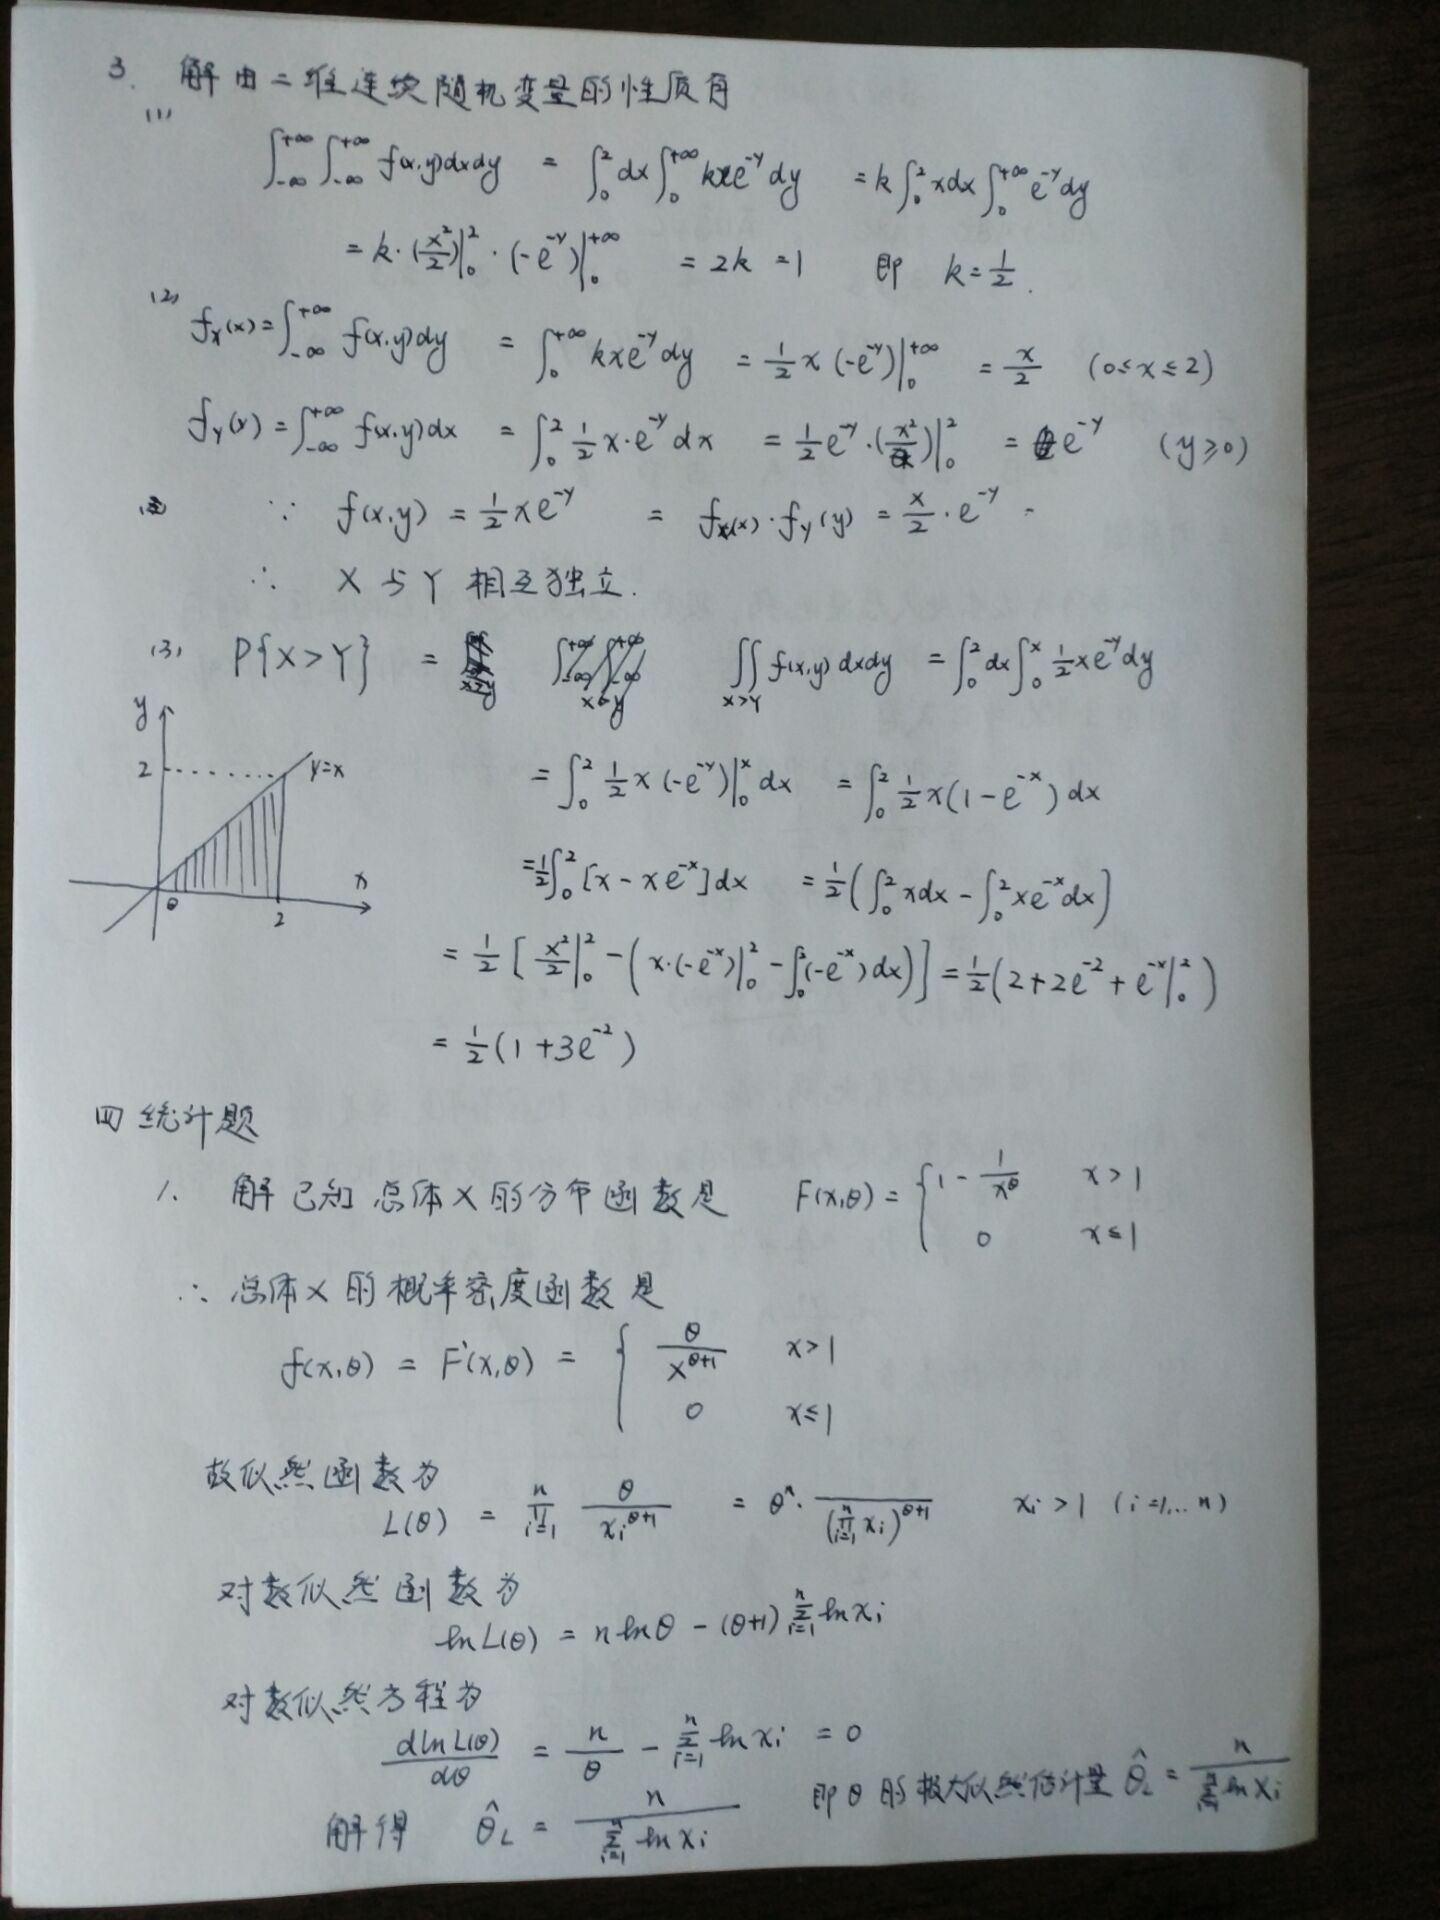 3. 解由二维连续随机变量的性质有
(1)
∫_{-∞}^{+∞}∫_{-∞}^{+∞} f(x,y)dxdy = ∫_0^2 dx∫_0^{+∞} kxe^{-y}dy = k∫_0^2 xdx∫_0^{+∞} e^{-y}dy
= k·(x²/2)|_0^2·(-e^{-y})|_0^{+∞} = 2k = 1 即 k=1/2.
(2) f_X(x)=∫_{-∞}^{+∞} f(x,y)dy = ∫_0^{+∞} kxe^{-y}dy = 1/2 x(-e^{-y})|_0^{+∞} = x/2 (0≤x≤2)
f_Y(y)=∫_{-∞}^{+∞} f(x,y)dx = ∫_0^2 1/2 x·e^{-y}dx = 1/2 e^{-y}·(x²/2)|_0^2 = e^{-y} (y≥0)
∵ f(x,y) = 1/2 xe^{-y} = f_X(x)·f_Y(y) = x/2·e^{-y}
∴ X与Y相互独立.
(3) P{X>Y} = ∬_{x>y} f(x,y)dxdy = ∫_0^2 dx∫_0^x 1/2 xe^{-y}dy
y
2
y=x
x
0
2
= ∫_0^2 1/2 x(-e^{-y})|_0^x dx = ∫_0^2 1/2 x(1-e^{-x})dx
= 1/2∫_0^2 [x-xe^{-x}]dx = 1/2(∫_0^2 xdx - ∫_0^2 xe^{-x}dx)
= 1/2[x²/2|_0^2 - (x·(-e^{-x})|_0^2 - ∫_0^2(-e^{-x})dx)] = 1/2(2+2e^{-2}+e^{-x}|_0^2)
= 1/2(1+3e^{-2})
四 统计题
1. 解 已知总体X的分布函数是 F(x,θ) = { 1-1/x^θ x>1
0 x≤1
∴ 总体X的概率密度函数是
f(x,θ) = F'(x,θ) = { θ/x^{θ+1} x>1
0 x≤1
故似然函数为
L(θ) = ∏_{i=1}^n θ/x_i^{θ+1} = θ^n· /(∏_{i=1}^n x_i)^{θ+1} x_i>1 (i=1,...n)
对数似然函数为
lnL(θ) = nlnθ - (θ+1)∑_{i=1}^n lnx_i
对数似然方程为
dlnL(θ)/dθ = n/θ - ∑_{i=1}^n lnx_i = 0
解得 θ̂_L = n/∑_{i=1}^n lnx_i 即θ的极大似然估计量 θ̂_L = n/∑_{i=1}^n lnX_i